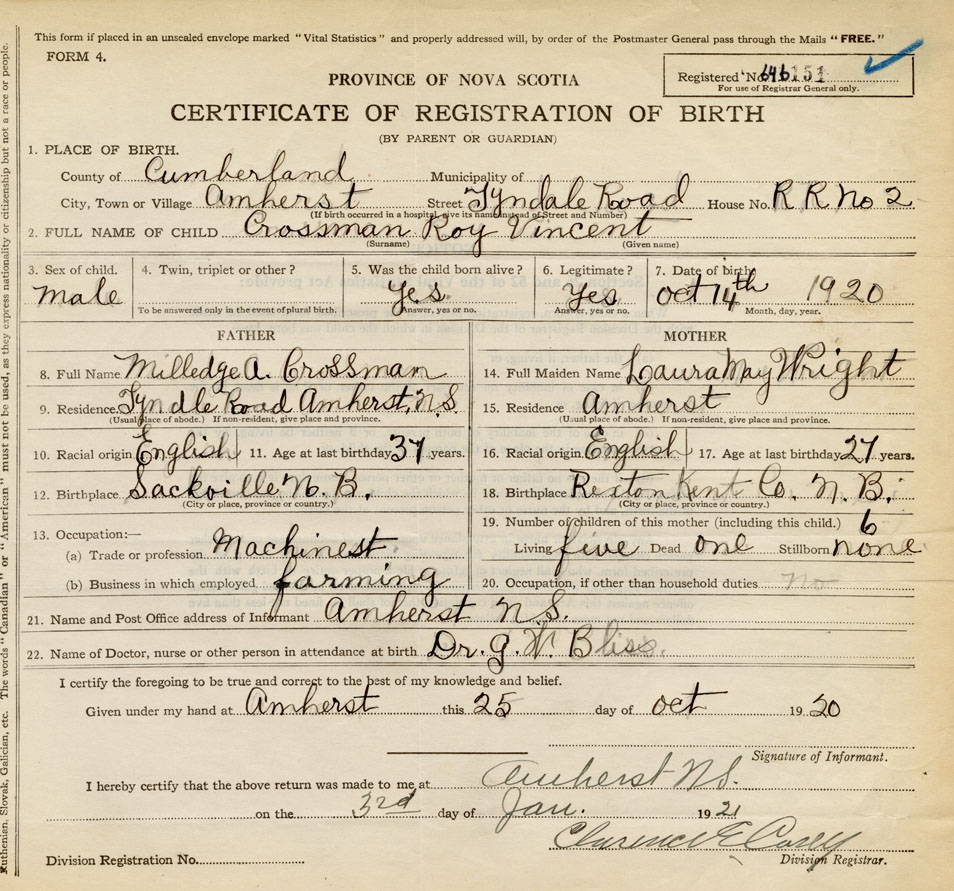 This form if placed in an unsealed envelope marked "Vital Statistics" and properly addressed will, by order of the Postmaster General pass through the Mails "FREE."
FORM 4.
Registered No. 646151
For use of Registrar General only.
PROVINCE OF NOVA SCOTIA
CERTIFICATE OF REGISTRATION OF BIRTH
(BY PARENT OR GUARDIAN)
1. PLACE OF BIRTH.
County of Cumberland Municipality of
City, Town or Village Amherst Street Tyndale Road House No. R R No 2
(If birth occurred in a hospital, give its name instead of Street and Number)
2. FULL NAME OF CHILD Crossman Roy Vincent
(Surname) (Given name)
3. Sex of child. 4. Twin, triplet or other? 5. Was the child born alive? 6. Legitimate? 7. Date of birth
Male Yes Yes Oct 14th 1920
To be answered only in the event of plural birth. Answer, yes or no. Answer, yes or no. Month, day, year.
FATHER
8. Full Name Milledge A. Crossman
9. Residence Tyndle Road Amherst, N.S.
(Usual place of abode.) If non-resident, give place and province.
10. Racial origin English 11. Age at last birthday 37 years.
12. Birthplace Sackville N. B.
(City or place, province or country.)
13. Occupation:—
(a) Trade or profession Machinest
(b) Business in which employed farming
MOTHER
14. Full Maiden Name Laura May Wright
15. Residence Amherst
(Usual place of abode.) If non-resident, give place and province.
16. Racial origin English 17. Age at last birthday 27 years.
18. Birthplace Rexton Kent Co. N. B.
(City or place, province or country.)
19. Number of children of this mother (including this child.) 6
Living five Dead one Stillborn none
20. Occupation, if other than household duties no
21. Name and Post Office address of Informant Amherst N.S.
22. Name of Doctor, nurse or other person in attendance at birth Dr. G. W. Bliss.
I certify the foregoing to be true and correct to the best of my knowledge and belief.
Given under my hand at Amherst this 25 day of Oct 1920
Signature of Informant.
I hereby certify that the above return was made to me at Amherst N.S.
on the 3rd day of Jan. 1921
Clarence E
Division Registration No. Division Registrar.
Ruthenian, Slovak, Galician, etc. The words "Canadian" or "American" must not be used, as they express nationality or citizenship but not a race or people.